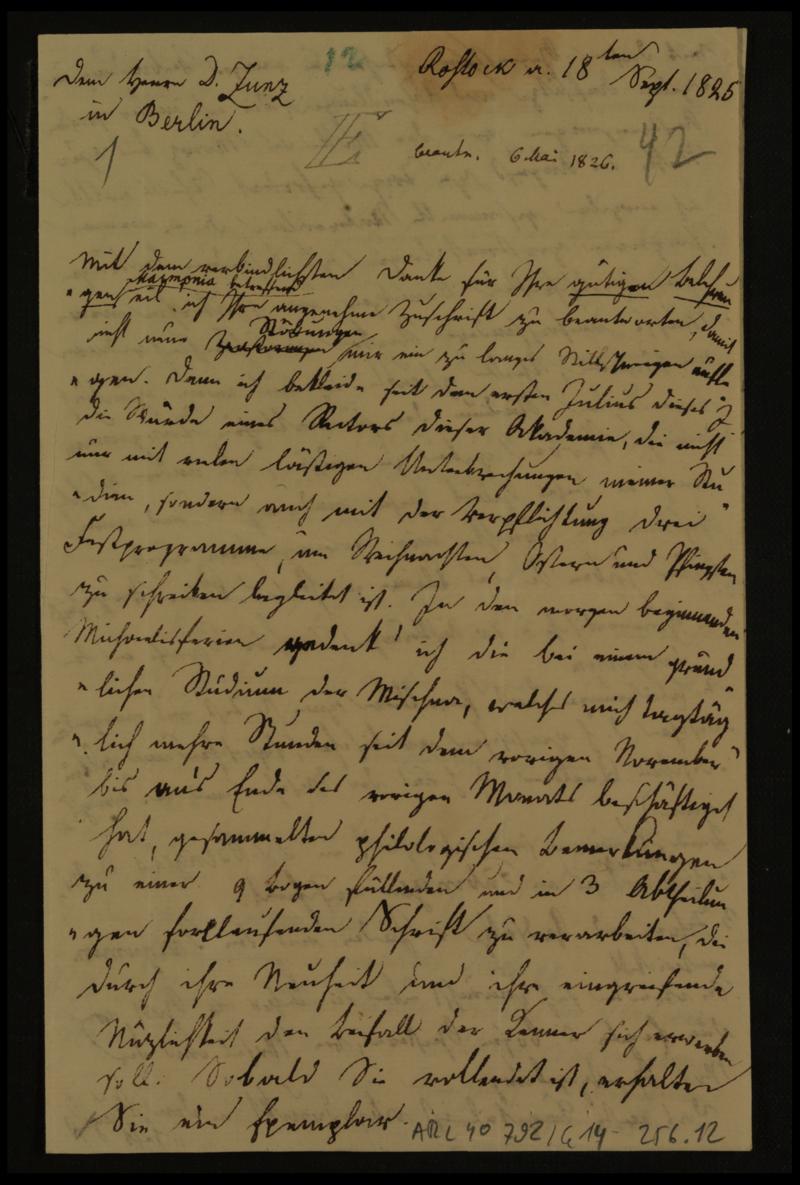 12
Rostock d. 18ten Sept. 1825
Dem Herrn D. Zunz
in Berlin.
1
42
beantw. 6 Mai 1826.
Mit dem verbindlichsten Danke für Ihre gütigen Belehrun
Harmonia betreffend
gen eil' ich Ihre angenehme Zuschrift zu beantworten, damit
Störungen
nicht neue mir ein zu langes Stillschweigen aufle
gen. Denn ich bekleide seit dem ersten Julius dieses J
die Würde eines Rectors dieser Akademie, die nicht
nur mit vielen lästigen Unterbrechungen meiner Stu
dien, sondern auch mit der Verpflichtung drei
Festprogramme, um Weihnachten, Ostern und Pfingsten
zu schreiben begleitet ist. In den morgen beginnenden
Michaelisferien gedenk' ich die bei einem gründ
lichen Studium der Mischna, welches mich tagtäg
lich mehre Stunden seit dem vorigen November
bis an's Ende des vorigen Monats beschäftiget
hat, gesammelten philologischen Bemerkungen
zu einer 9 Bogen füllenden und in 3 Abtheilun
gen fortlaufenden Schrift zu verarbeiten, die
durch ihre Neuheit und ihre eingreifende
Nützlichkeit den Beifall der Kenner sich erwerben
soll. Sobald Sie vollendet ist, erhalten
Sie ein Exemplar.
ARC 4° 792/G 14 - 256.12